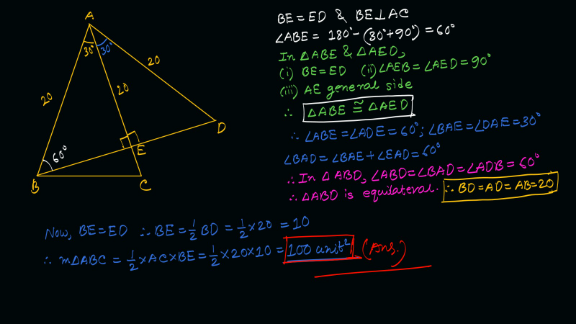 A
30°
30°
20
20
20
D
E
60°
B
C
BE=ED & BE⊥AC
∠ABE = 180°-(30°+90°)=60°
In △ABE & △AED,
(i) BE=ED (ii)∠AEB=∠AED=90°
(iii) AE general side
∴ △ABE ≅ △AED
∴ ∠ABE=∠ADE=60°; ∠BAE=∠DAE=30°
∠BAD=∠BAE+∠EAD=60°
∴ In △ABD, ∠ABD=∠BAD=∠ADB=60°
∴ △ABD is equilateral. ∴ BD=AD=AB=20
Now, BE=ED ∴ BE=1/2 BD=1/2×20=10
∴ m△ABC = 1/2×AC×BE=1/2×20×10=100 unit² (Ans.)